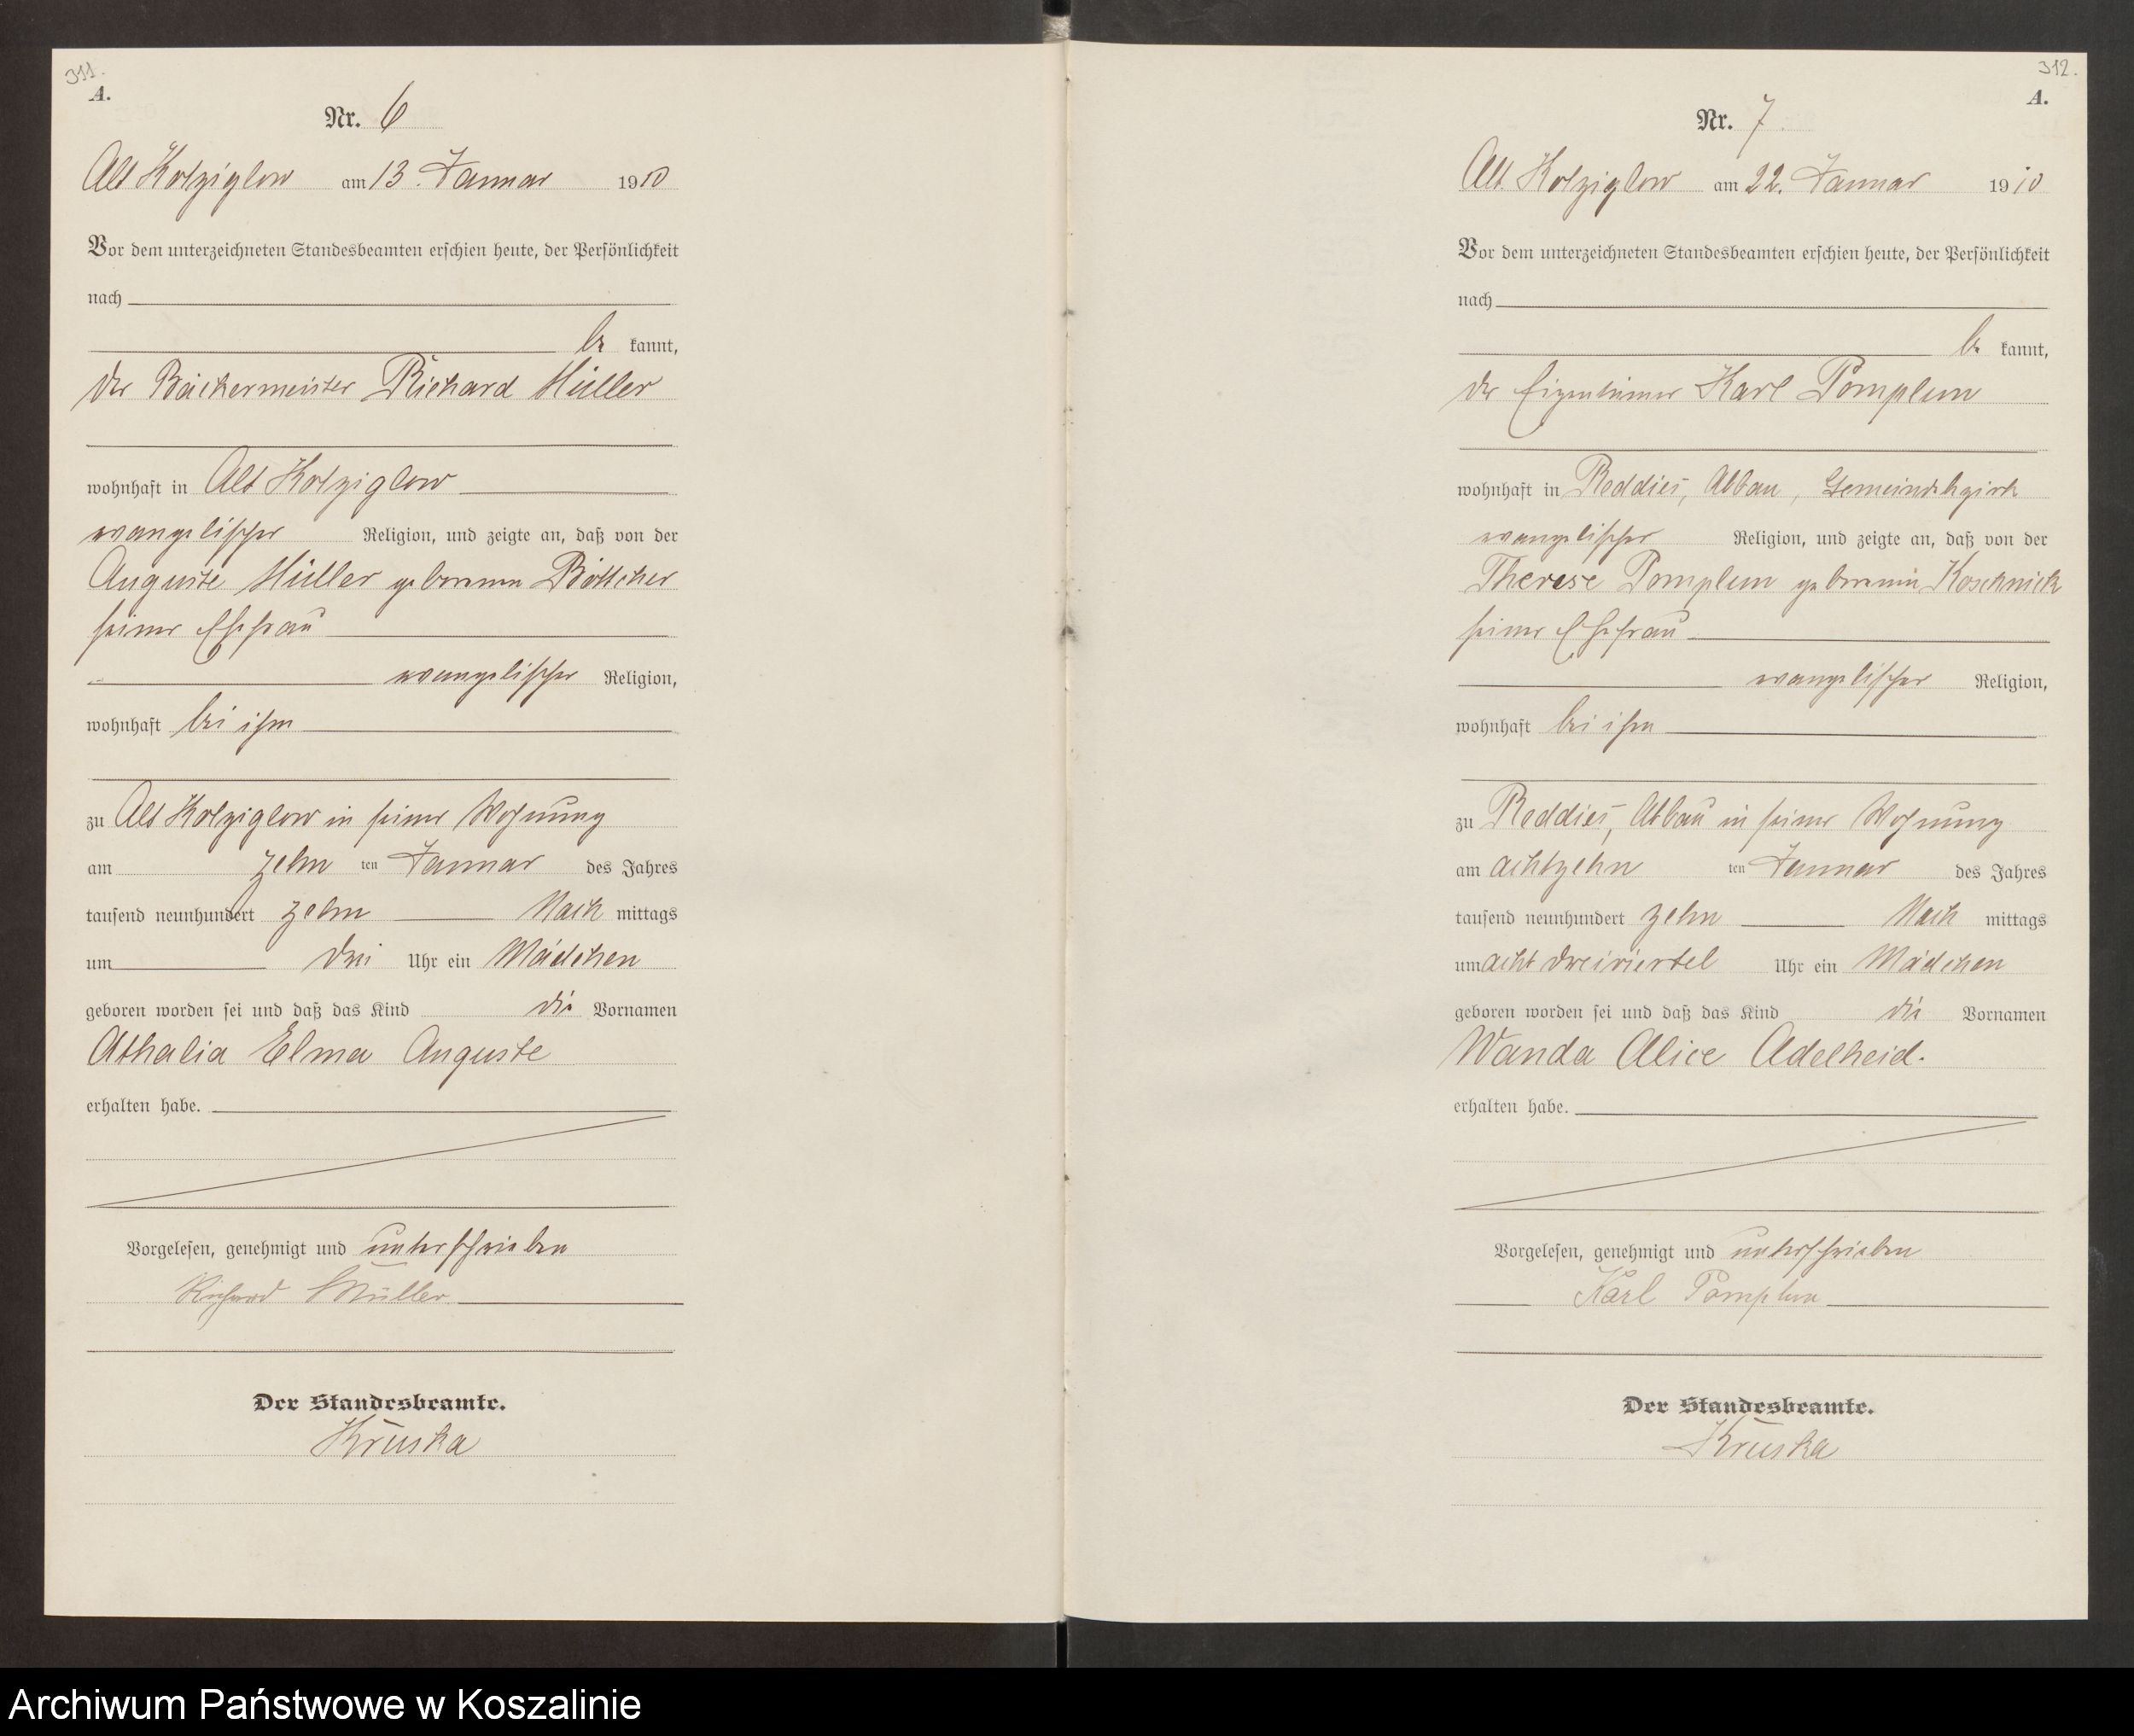 311.
A.
Nr. 6
Alt Kolziglow am 13. Januar 1910
Vor dem unterzeichneten Standesbeamten erschien heute, der Persönlichkeit
nach
be kannt,
der Bäckermeister Richard Müller
wohnhaft in Alt Kolziglow
evangelischer Religion, und zeigte an, daß von der
Auguste Müller geborenen Böttcher
seiner Ehefrau
evangelischer Religion,
wohnhaft bei ihm
zu Alt Kolziglow in seiner Wohnung
am zehn ten Januar des Jahres
tausend neunhundert zehn Nach mittags
um drei Uhr ein Mädchen
geboren worden sei und daß das Kind die Vornamen
Athalia Elma Auguste
erhalten habe.
Vorgelesen, genehmigt und unterschrieben
Richard Müller
Der Standesbeamte.
Kruska
312.
A.
Nr. 7
Alt Kolziglow am 22. Januar 1910
Vor dem unterzeichneten Standesbeamten erschien heute, der Persönlichkeit
nach
be kannt,
der Eigentümer Karl Pomplun
wohnhaft in Reddies, Abbau, Gemeindebezirk
evangelischer Religion, und zeigte an, daß von der
Therese Pomplun geborenen Koschnick
seiner Ehefrau
evangelischer Religion,
wohnhaft bei ihm
zu Reddies, Abbau in seiner Wohnung
am achtzehn ten Januar des Jahres
tausend neunhundert zehn Nach mittags
um acht dreiviertel Uhr ein Mädchen
geboren worden sei und daß das Kind die Vornamen
Wanda Alice Adelheid.
erhalten habe.
Vorgelesen, genehmigt und unterschrieben
Karl Pomplun
Der Standesbeamte.
Kruska
Archiwum Państwowe w Koszalinie